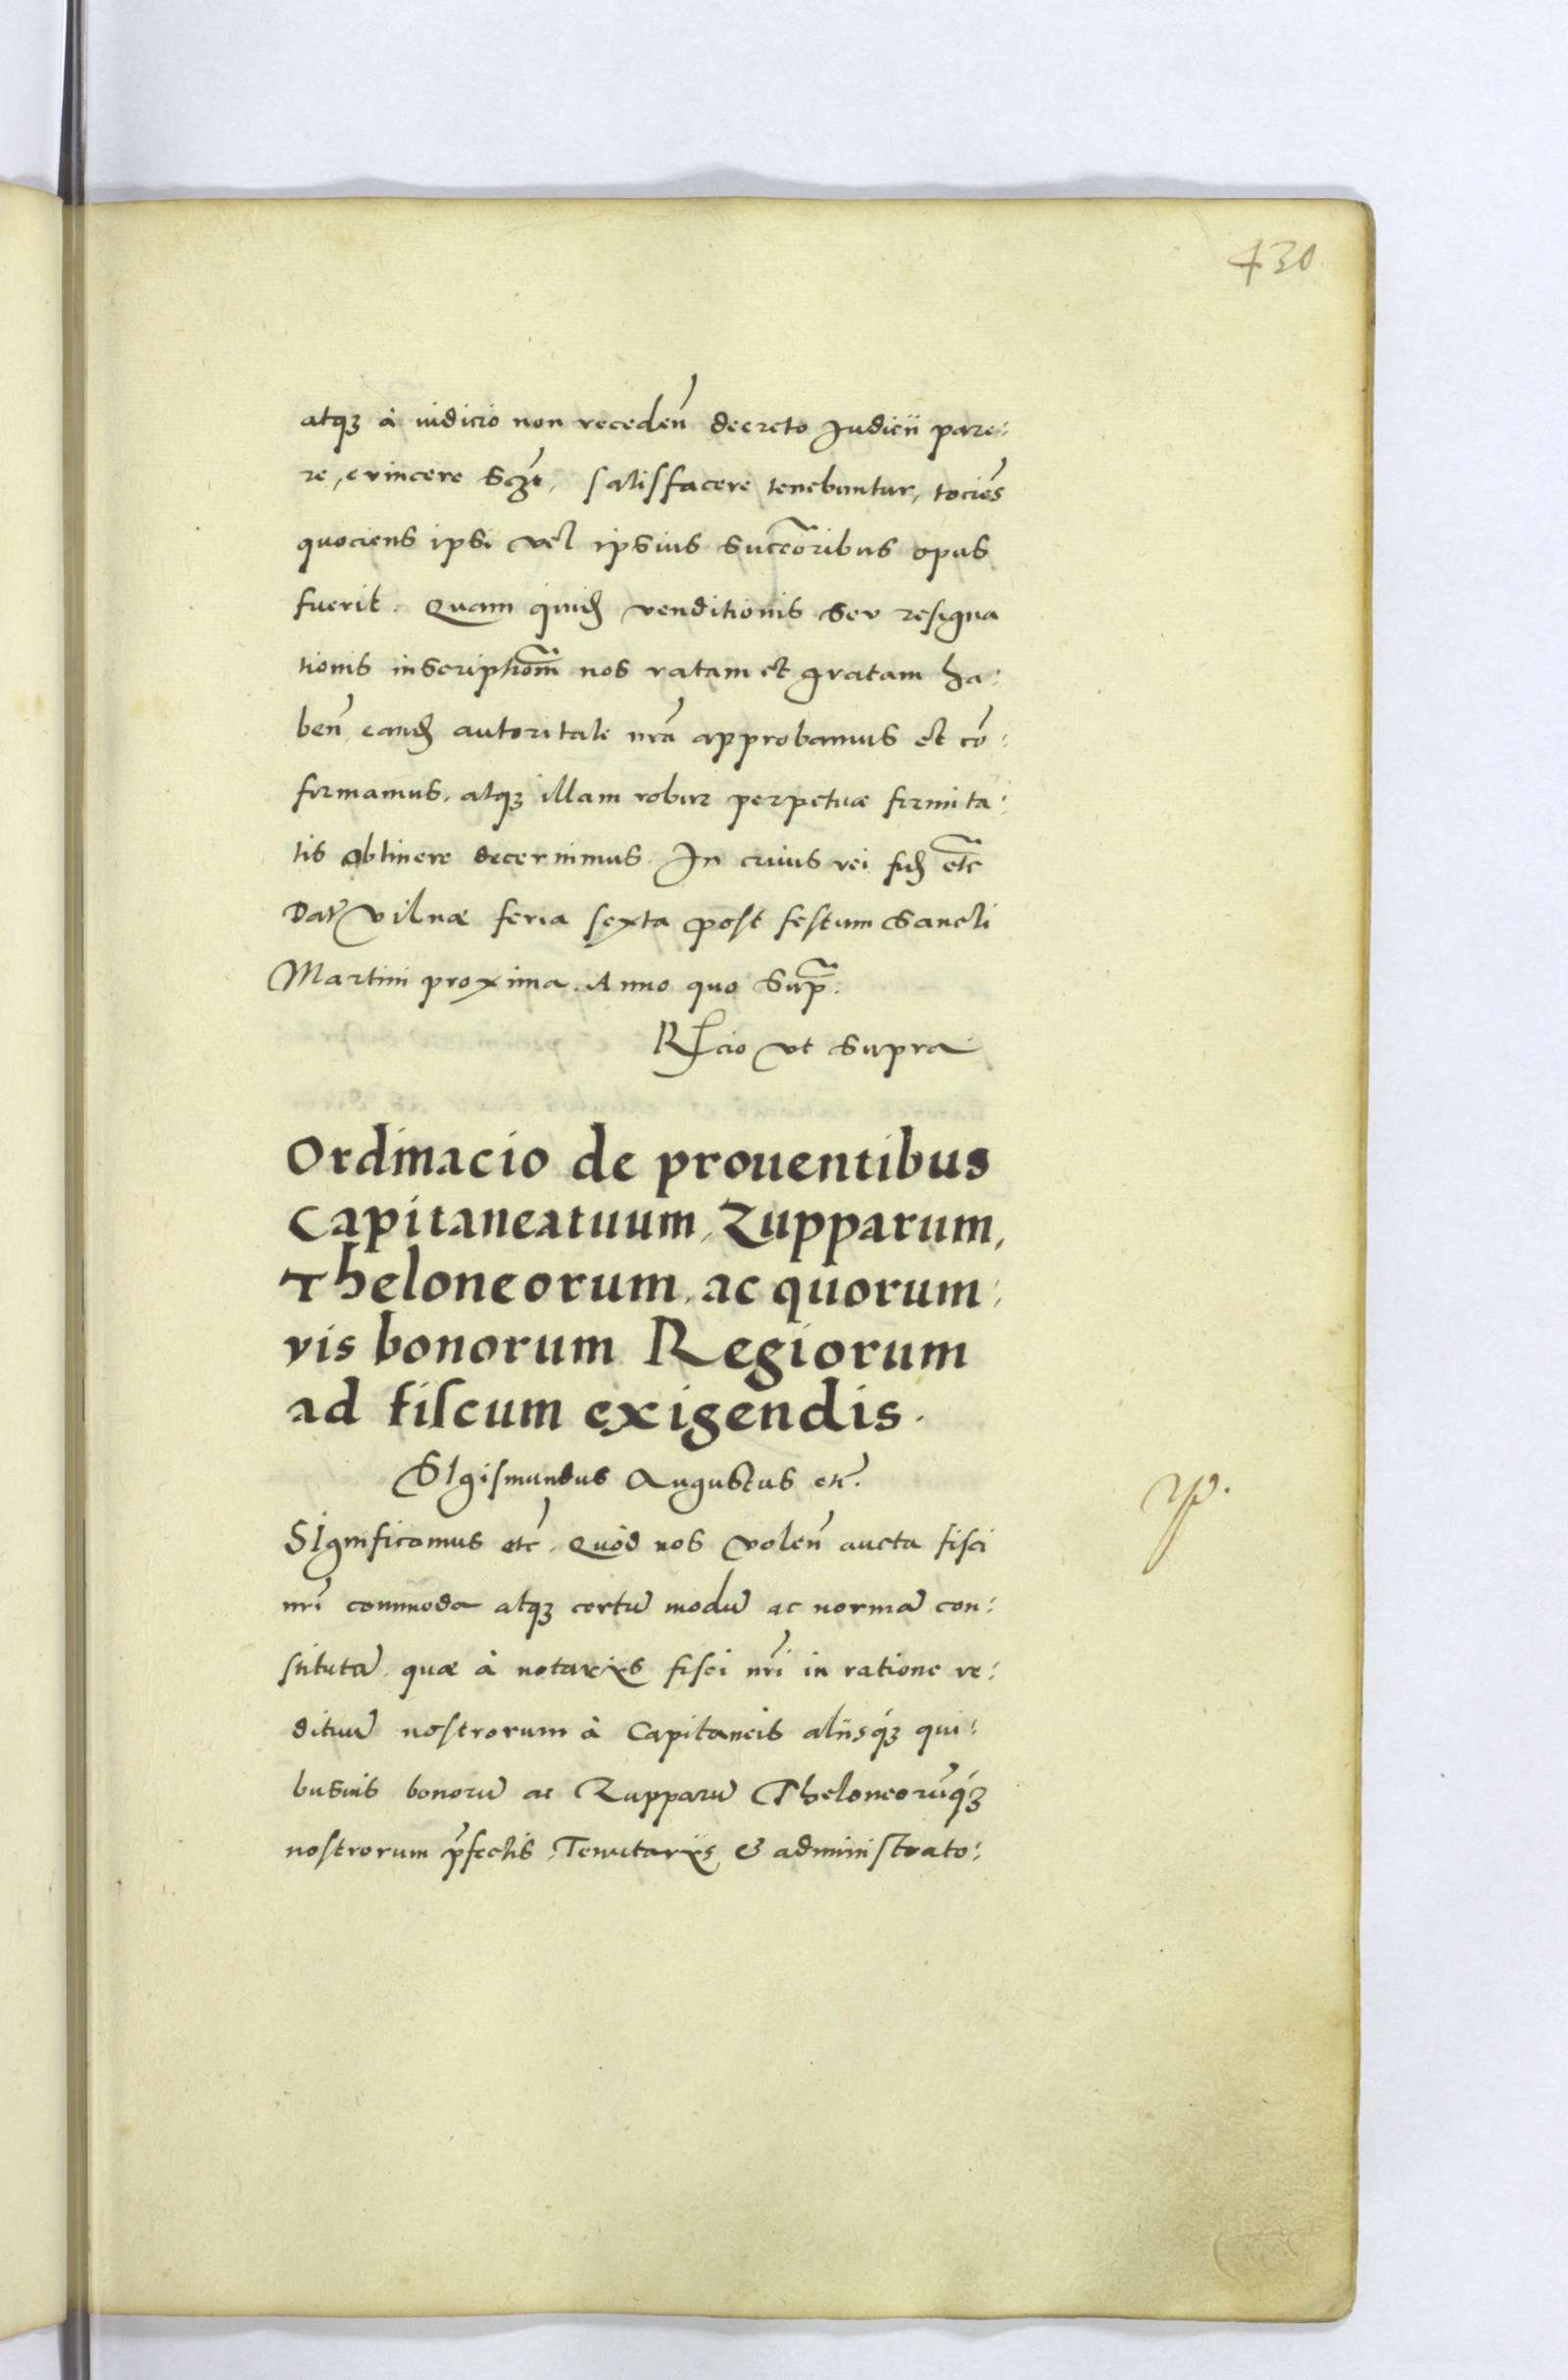 430
atqꝫ à iudicio non recedeñ decreto Judicii pare:
re, euincere Scꝫt, satisfacere tenebuntur, tocies̄
quociens ipsi vel ipsius succeōribus opus
fuerit. Quam quid̄ venditionis seu resigna
tionis inscriptiom̄ nos ratam et gratam ha:
beñ eand̄ autoritate nrā approbamus et cō:
firmamus, atqꝫ illam robur perpetuæ firmita:
tis obtinere decernimus. In cuius rei fid̄ etc̄
Dat̄ Vilnæ feria sexta post festum Sancti
Martini proxima. Anno quo sup̄.
Rl̄cio vt supra
Ordinacio de prouentibus
Capitaneatuum, Zupparum,
Theloneorum, ac quorum:
vis bonorum Regiorum
ad fiscum exigendis.
SIgismundus Augustus etc̄.
SIgnificamus etc̄. Quòd nos voleñ aucta fisci
nrī commoda atqꝫ certū modū ac normā con:
stitutā quæ à notariis fisci nrī in ratione re:
dituū nostrorum à Capitaneis aliisqꝫ́ qui:
busuis bonorū ac Zupparū Theloneorūqꝫ́
nostrorum p̄fectis, Tenutariis & administrato: